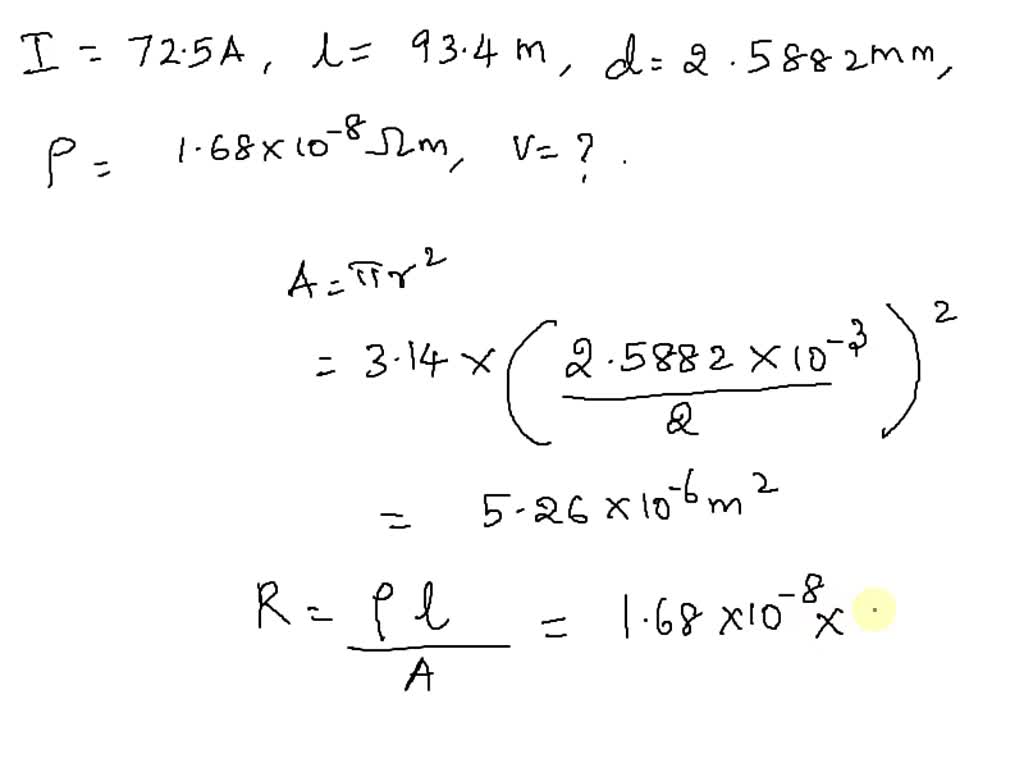 I = 72.5A, l = 93.4 m, d = 2.5882mm,
ρ = 1.68 × 10⁻⁸ Ωm, V = ? .
A = πr²
= 3.14 × (2.5882 × 10⁻³ / 2)²
= 5.26 × 10⁻⁶ m²
R = ρl / A = 1.68 × 10⁻⁸ ×